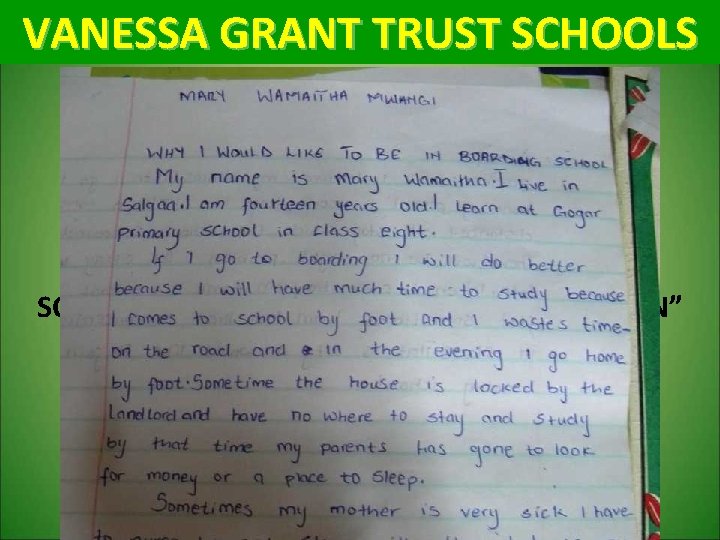 VANESSA GRANT TRUST SCHOOLS
MARY WAMAITHA MWANGI
WHY I WOULD LIKE TO BE IN BOARDING SCHOOL
My name is Mary Wamaitha. I Live in
Salgaa. I am fourteen years old. I Learn at Gogar
primary school in class eight.
If I go to boarding I will do better
because I will have much time to study because
I comes to school by foot and I wastes time
on the road and in the evening I go home
by foot. Sometime the house is locked by the
Landlord and have no where to stay and study
by that time my parents has gone to look
for money or a place to sleep.
Sometimes my mother is very sick I have
SC N”